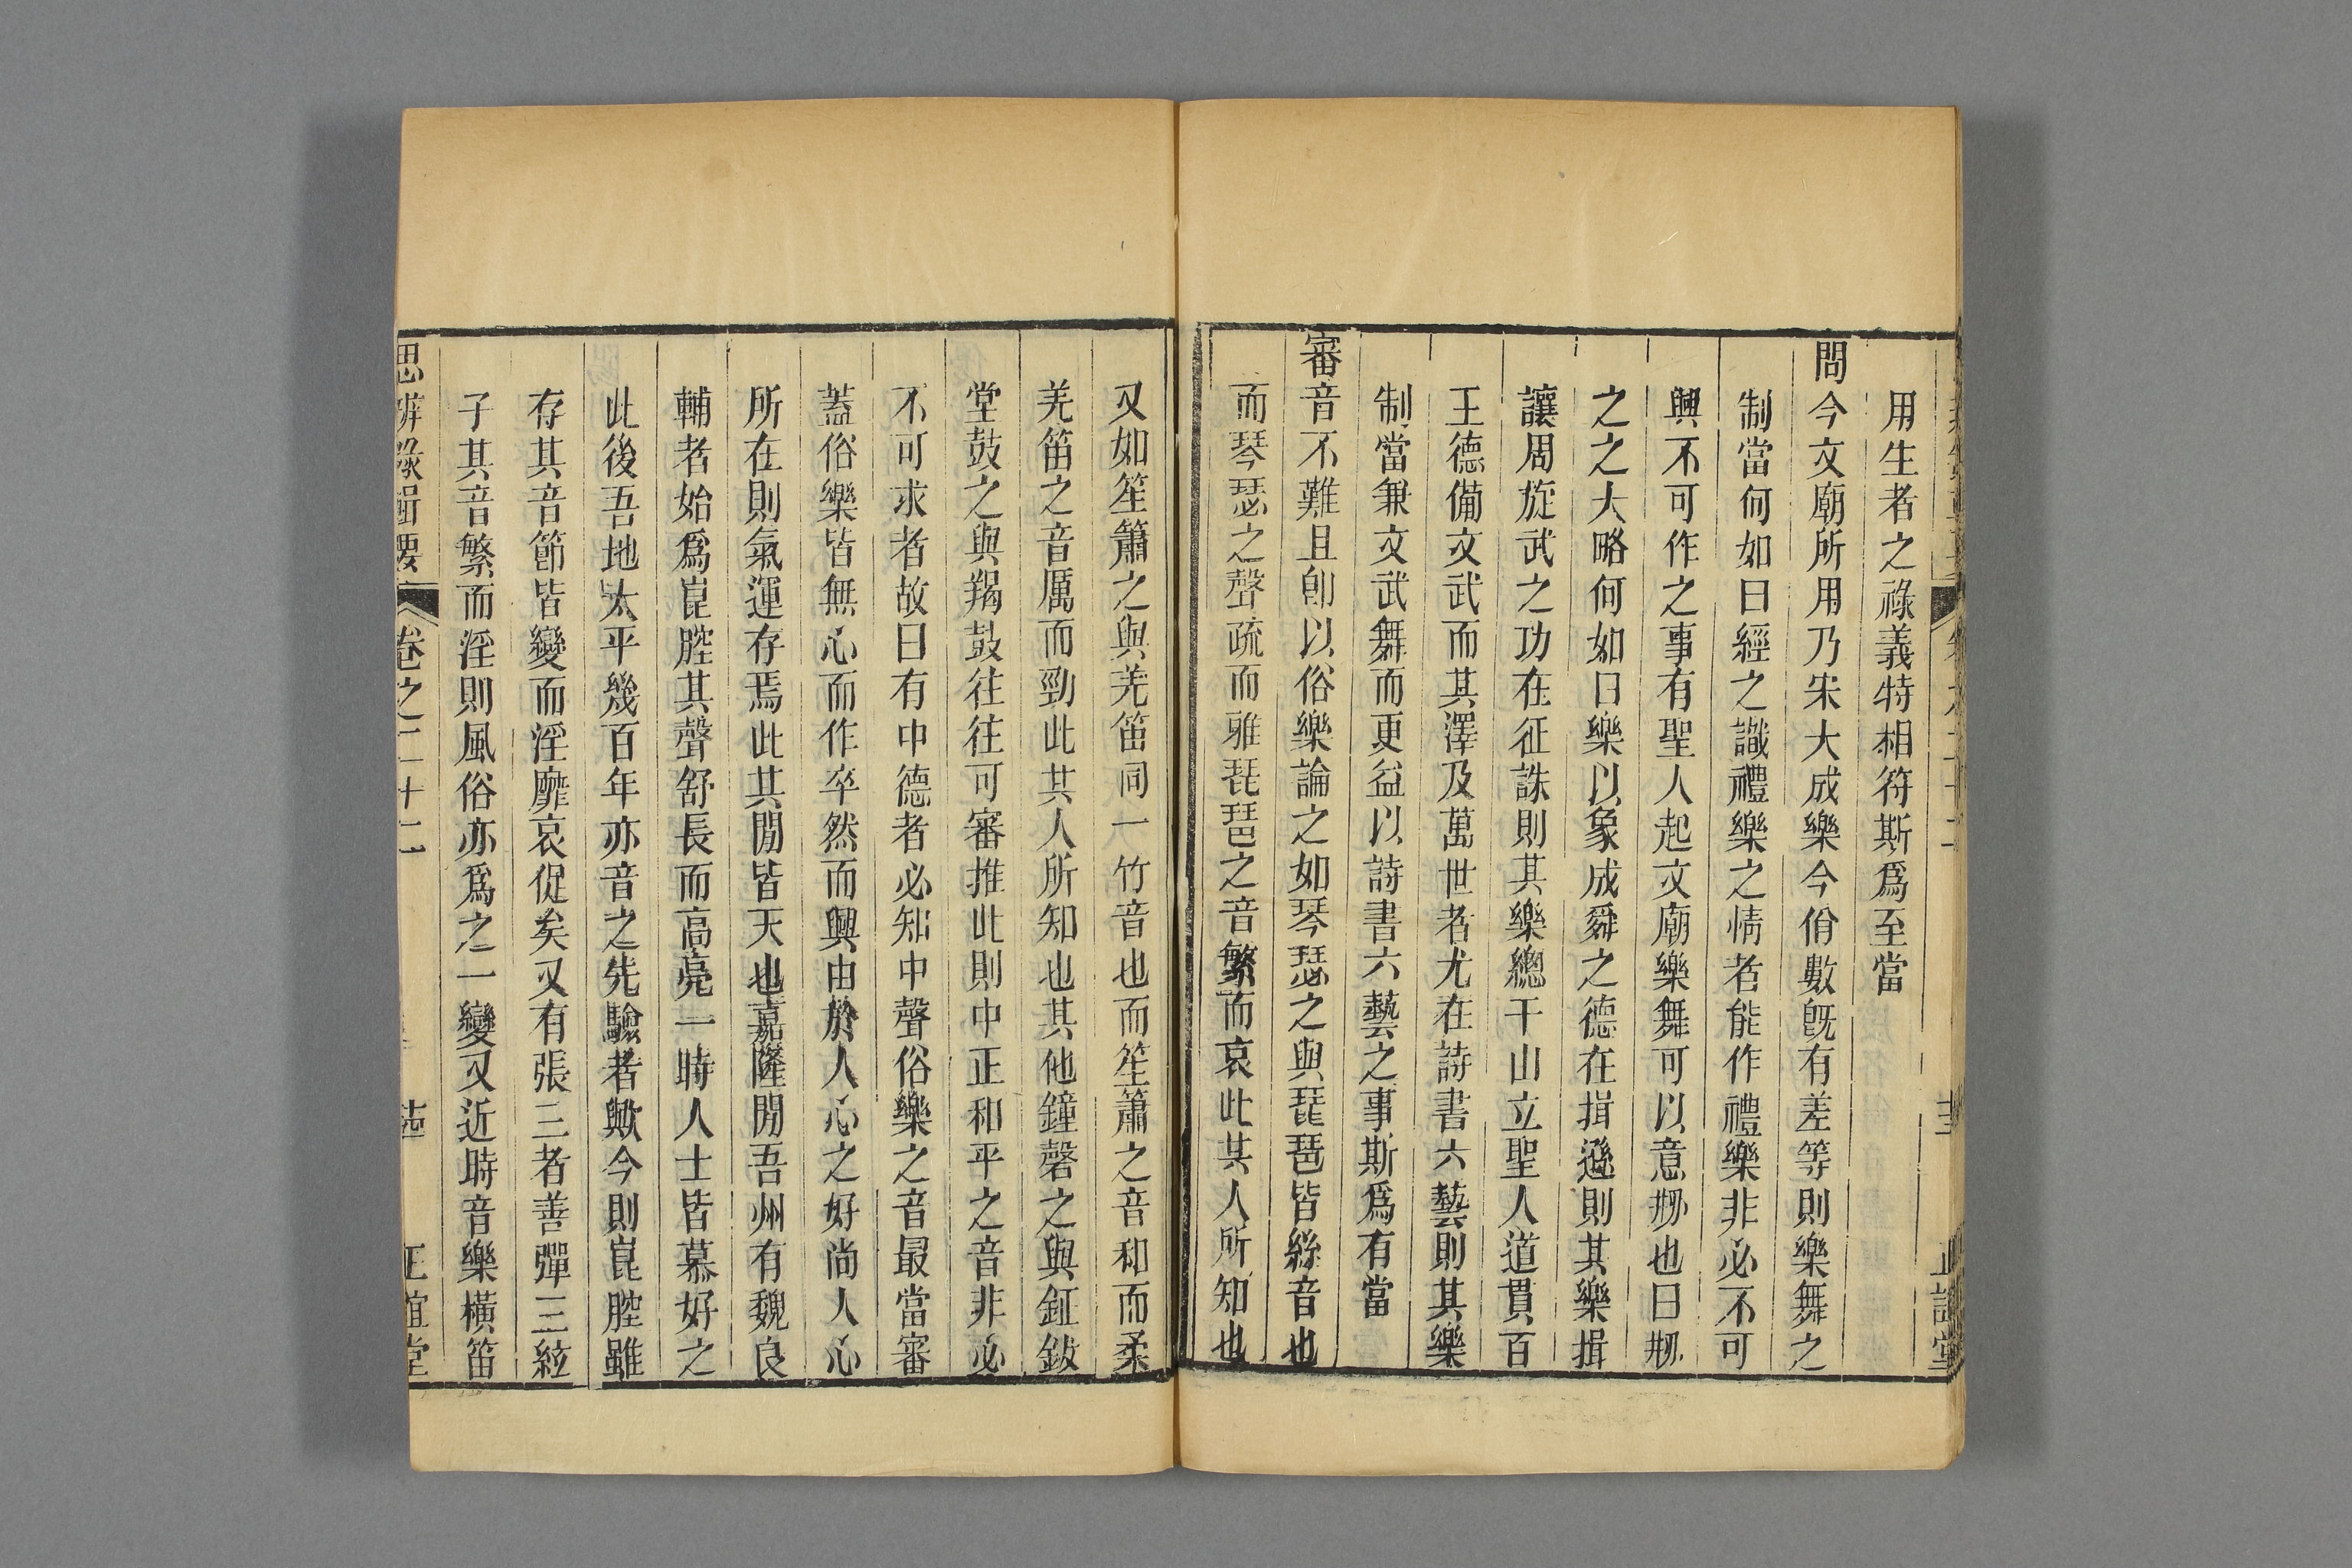 用生者之祿義特相符斯爲至當
問今文廟所用乃宋大成樂今佾數旣有差等則樂舞之
制當何如曰經之識禮樂之情者能作禮樂非必不可
興不可作之事有聖人起文廟樂舞可以意刱也曰刱
之之大略何如曰樂以象成舜之德在揖遜則其樂揖
讓周旋武之功在征誅則其樂總干山立聖人道貫百
王德備文武而其澤及萬世者尤在詩書六藝則其樂
制當兼文武舞而更益以詩書六藝之事斯爲有當
審音不難且卽以俗樂論之如琴瑟之與琵琶皆絲音也
而琴瑟之聲疏而雅琵琶之音繁而哀此其人所知也
又如笙簫之與羌笛同一竹音也而笙簫之音和而柔
羌笛之音厲而勁此其人所知也其他鐘磬之與鉦鈸
堂鼓之與羯鼓往往可審推此則中正和平之音非必
不可求者故曰有中德者必知中聲俗樂之音最當審
蓋俗樂皆無心而作卒然而興由於人心之好尚人心
所在則氣運存焉此其閒皆天也嘉隆閒吾州有魏良
輔者始爲崑腔其聲舒長而高亮一時人士皆慕好之
此後吾地太平幾百年亦音之先驗者歟今則崑腔雖
存其音節皆變而淫靡哀促矣又有張三者善彈三絃
子其音繁而淫則風俗亦爲之一變又近時音樂橫笛
思辨錄輯要 卷之二十二 正誼堂